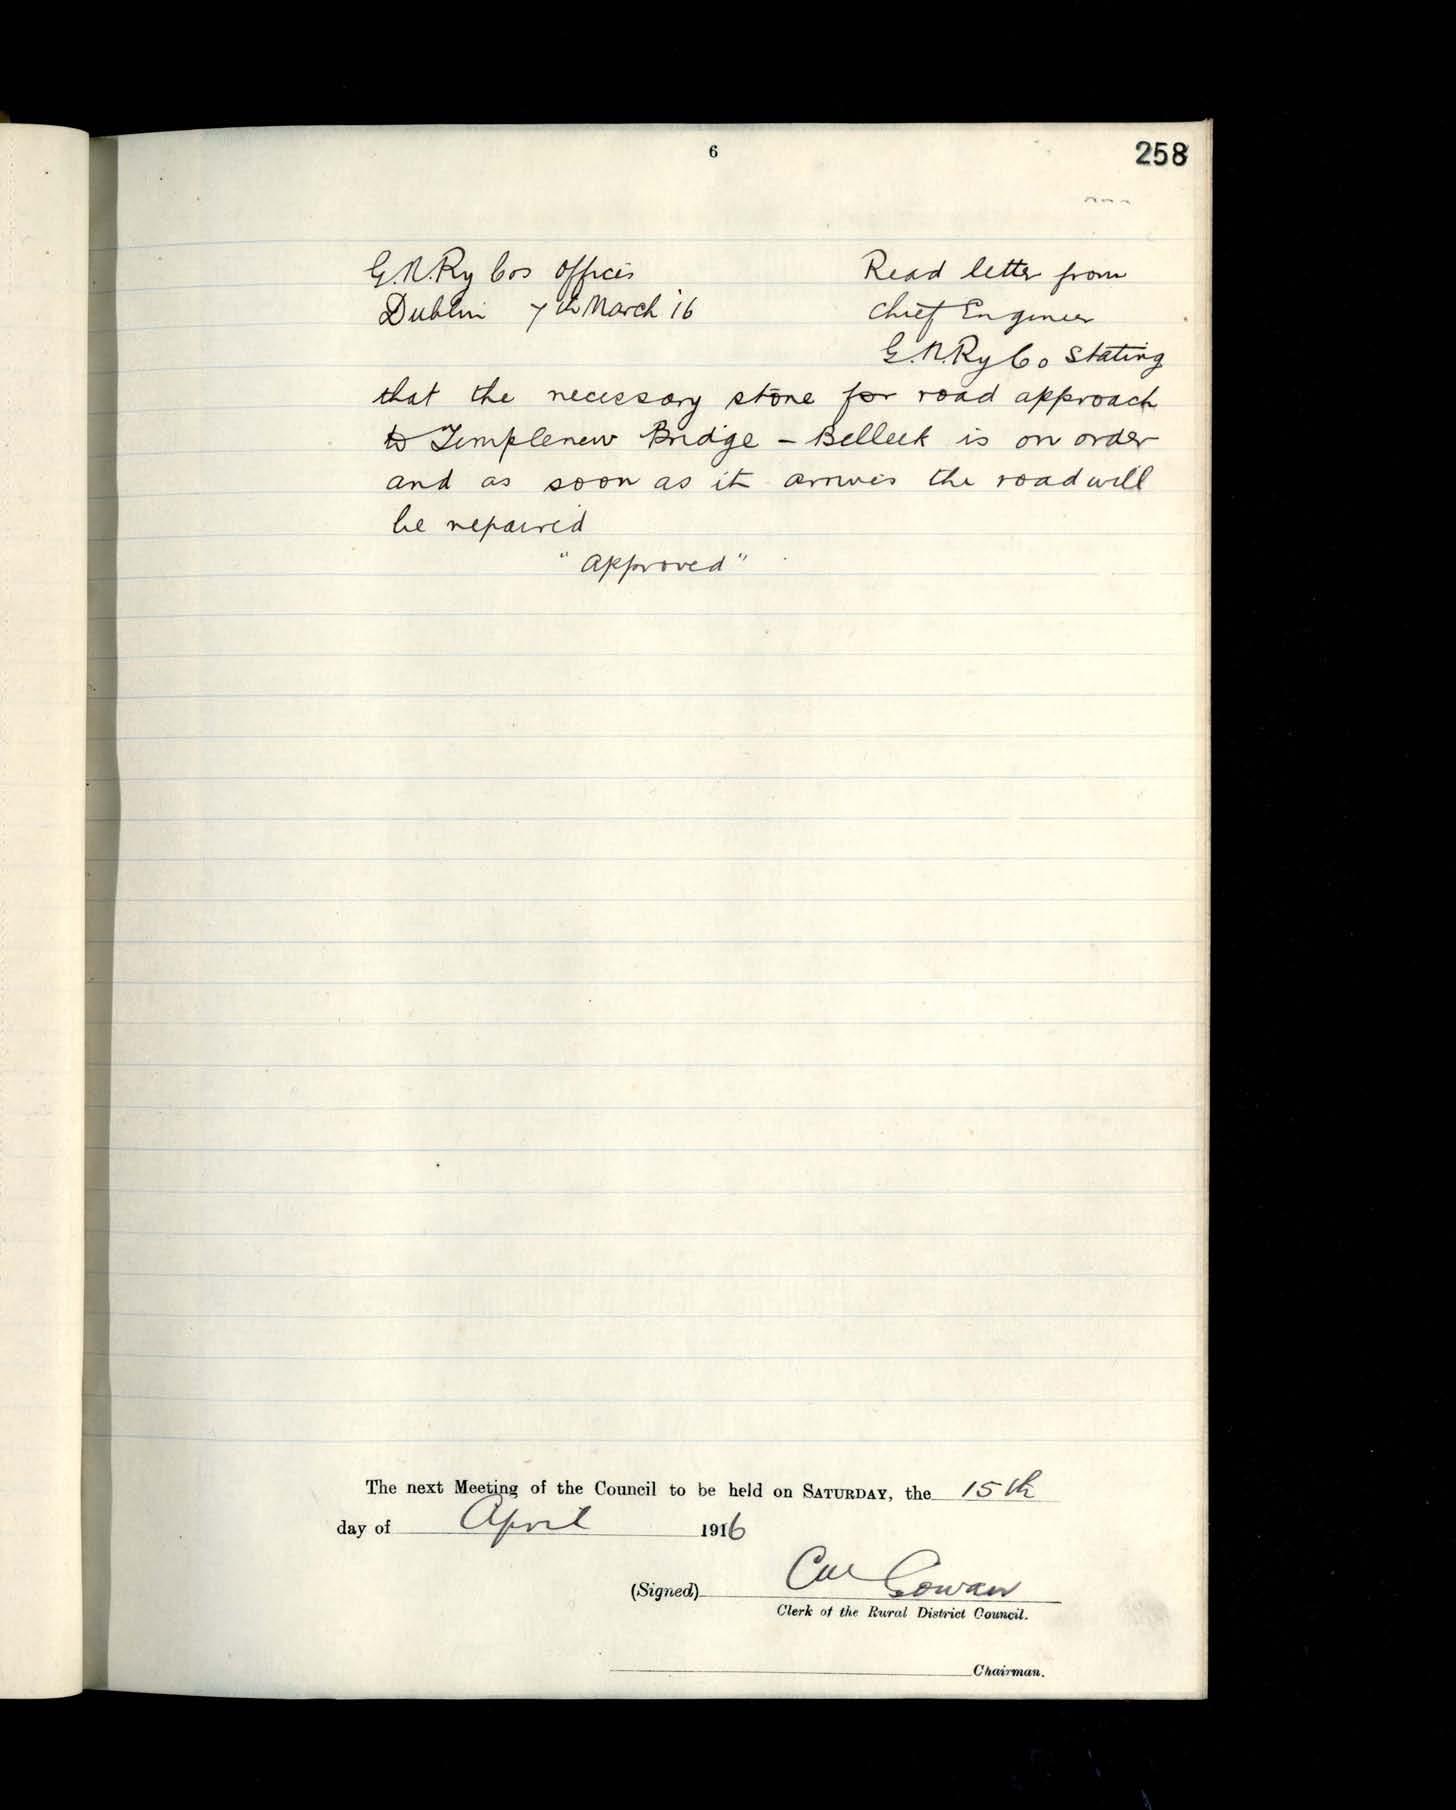 6
258
G.N.Ry Cos Offices
Read letter from
Dublin 7th March '16
Chief Engineer
G.N.Ry Co Stating
that the necessary stone for road approach
to Templenew Bridge - Belleek is on order
and as soon as it arrives the road will
be repaired
"Approved"
The next Meeting of the Council to be held on SATURDAY, the 15th
day of April 1916
(Signed) Gowan
Clerk of the Rural District Council.
Chairman.